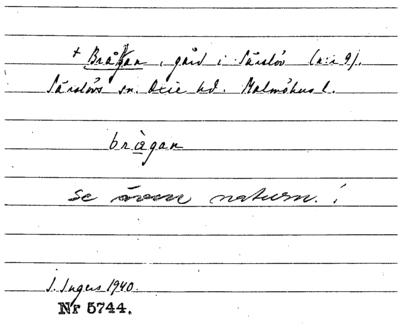 + Brågan, gård i Särslöv (n:r 9).
Särslövs sn. Oxie hd. Malmöhus l.
brågan
se även naturn.!
I. Ingers 1940.
Nr 5744.